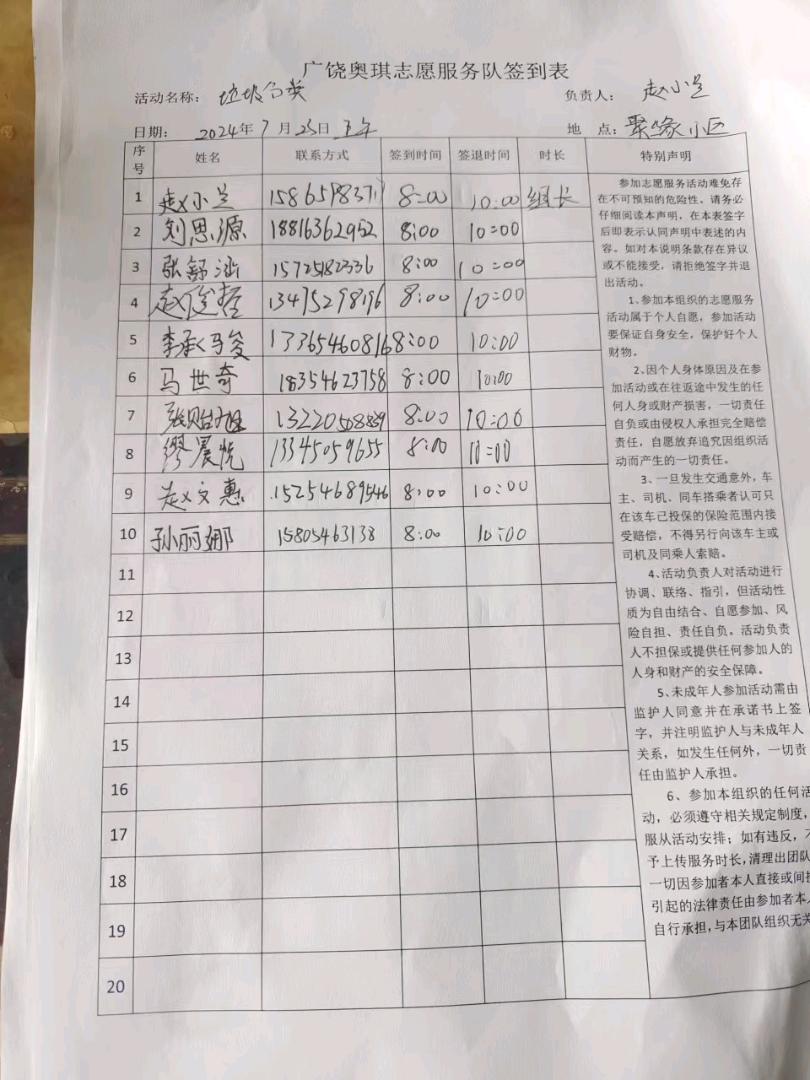 广饶奥琪志愿服务队签到表
活动名称： 垃圾分类 负责人： 赵小兰
日期： 2024年7月25日 上午 地 点：聚缘小区
序号 姓名 联系方式 签到时间 签退时间 时长 特别声明
1 赵小兰 8:00 10:00 组长
2 刘思源 18816362952 8:00 10:00
3 张舒涵 15725182336 8:00 10:00
4 赵俊哲 13475298196 8:00 10:00
5 李承骏 13365460816 8:00 10:00
6 马世奇 18354623758 8:00 10:00
7 8:00 10:00
8 缪晨悦 13345059655 8:00 10:00
9 赵文惠 15254689546 8:00 10:00
10 孙丽娜 15805463138 8:00 10:00
11
12
13
14
15
16
17
18
19
20
参加志愿服务活动难免存
在不可预知的危险性，请务必
仔细阅读本声明，在本表签字
后即表示认同声明中表述的内
容。如对本说明条款存在异议
或不能接受，请拒绝签字并退
出活动。
1、参加本组织的志愿服务
活动属于个人自愿，参加活动
要保证自身安全，保护好个人
财物。
2、因个人身体原因及在参
加活动或在往返途中发生的任
何人身或财产损害，一切责任
自负或由侵权人承担完全赔偿
责任，自愿放弃追究因组织活
动而产生的一切责任。
3、一旦发生交通意外，车
主、司机、同车搭乘者认可只
在该车已投保的保险范围内接
受赔偿，不得另行向该车主或
司机及同乘人索赔。
4、活动负责人对活动进行
协调、联络、指引，但活动性
质为自由结合、自愿参加、风
险自担、责任自负。活动负责
人不担保或提供任何参加人的
人身和财产的安全保障。
5、未成年人参加活动需由
监护人同意并在承诺书上签
字，并注明监护人与未成年人
关系，如发生任何外，一切责
任由监护人承担。
6、参加本组织的任何活
动，必须遵守相关规定制度，
服从活动安排；如有违反，不
予上传服务时长，清理出团队
一切因参加者本人直接或间接
引起的法律责任由参加者本人
自行承担，与本团队组织无关